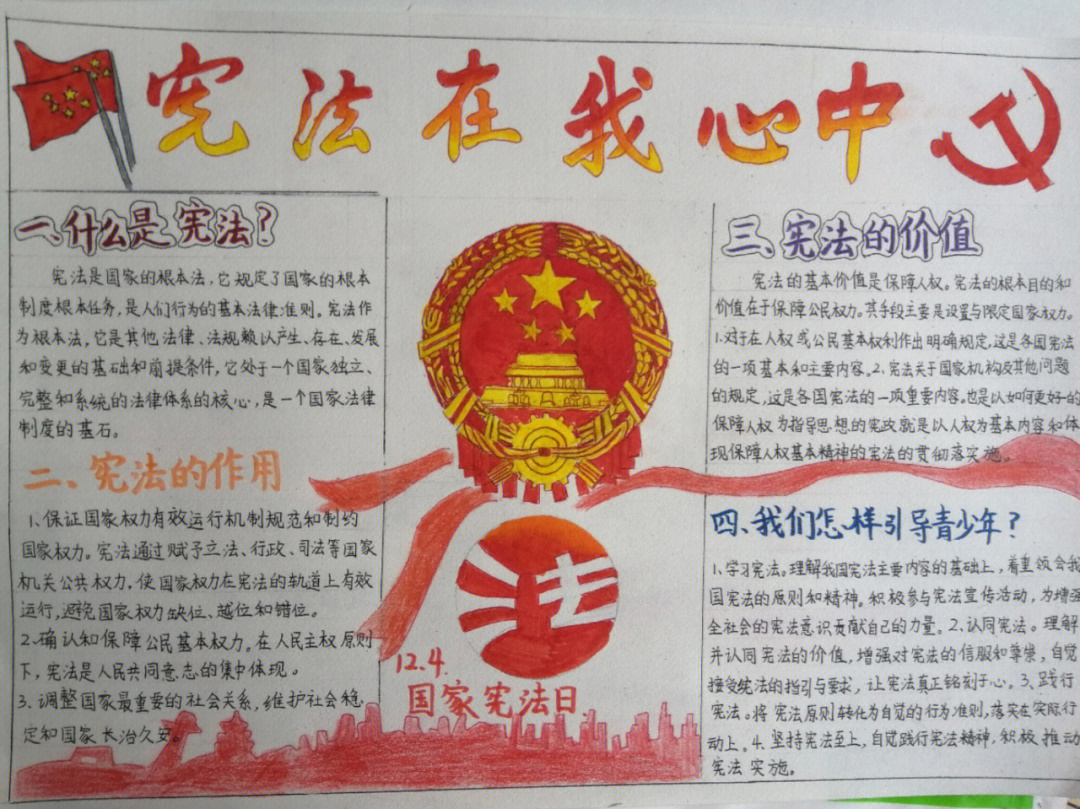 宪法在我心中
一、什么是宪法?
宪法是国家的根本法,它规定了国家的根本
制度根本任务,是人们行为的基本法律准则。宪法作
为根本法,它是其他法律、法规赖以产生、存在、发展
和变更的基础和前提条件,它处于一个国家独立、
完整和系统的法律体系的核心,是一个国家法律
制度的基石。
二、宪法的作用
1、保证国家权力有效运行机制规范和制约
国家权力。宪法通过赋予立法、行政、司法等国家
机关公共权力,使国家权力在宪法的轨道上有效
运行,避免国家权力缺位、越位和错位。
2、确认和保障公民基本权力。在人民主权原则
下,宪法是人民共同意志的集中体现。
3、调整国家最重要的社会关系,维护社会稳
定和国家长治久安。
法
12.4.
国家宪法日
三、宪法的价值
宪法的基本价值是保障人权。宪法的根本目的和
价值在于保障公民权力。其手段主要是设置与限定国家权力。
1.对于在人权或公民基本权利作出明确规定,这是各国宪法
的一项基本和主要内容。2、宪法关于国家机构及其他问题
的规定,这是各国宪法的一项重要内容。也是以如何更好的
保障人权为指导思想的宪政就是以人权为基本内容和体
现保障人权基本精神的宪法的贯彻落实施。
四、我们怎样引导青少年?
1、学习宪法。理解我国宪法主要内容的基础上,着重领会我
国宪法的原则和精神。积极参与宪法宣传活动,为增强
全社会的宪法意识贡献自己的力量。2、认同宪法。理解
并认同宪法的价值,增强对宪法的信服和尊崇,自觉
接受宪法的指引与要求,让宪法真正铭刻于心。3、践行
宪法。将宪法原则转化为自觉的行为准则,落实在实际行
动上。4、坚持宪法至上,自觉践行宪法精神,积极推动
宪法实施。